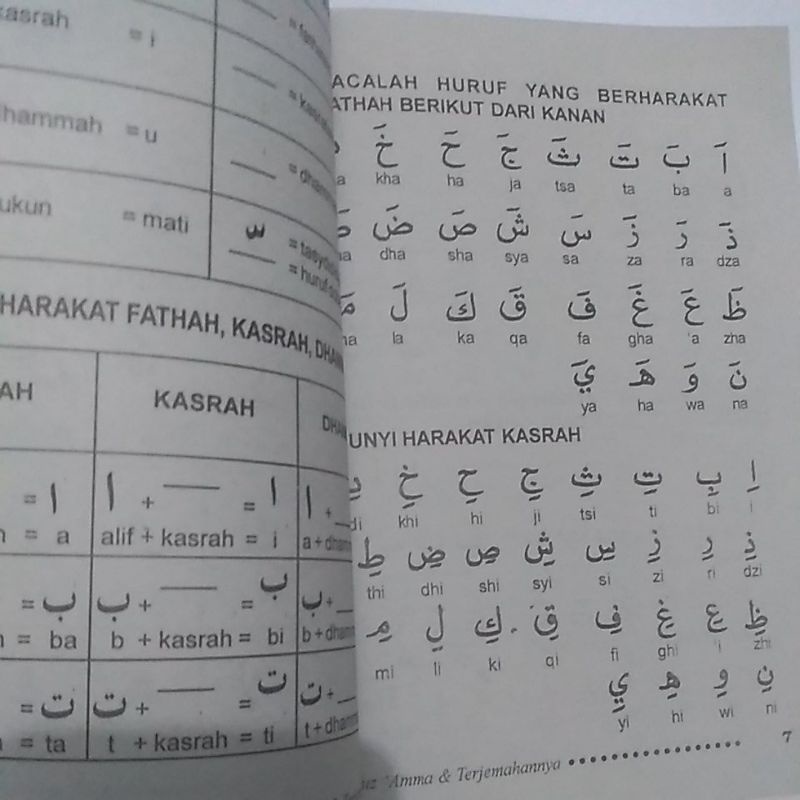 kasrah = i
dhammah = u
sukun = mati
HARAKAT FATHAH, KASRAH,
KASRAH
ا + = ا
alif + kasrah = i
= a
ب + = ب
b + kasrah = bi
= ba
ت + = ت
t + kasrah = ti
= ta
BACALAH HURUF YANG BERHARAKAT
FATHAH BERIKUT DARI KANAN
اَ بَ تَ ثَ جَ حَ خَ
kha ha ja tsa ta ba a
ذَ رَ زَ سَ شَ صَ ضَ
dha sha sya sa za ra dza
ظَ عَ غَ فَ قَ كَ لَ
la ka qa fa gha 'a zha
نَ وَ هَ يَ
ya ha wa na
BUNYI HARAKAT KASRAH
اِ بِ تِ ثِ جِ حِ خِ دِ
di khi hi ji tsi ti bi i
ذِ رِ زِ سِ شِ صِ ضِ طِ
thi dhi shi syi si zi ri dzi
ظِ عِ غِ فِ قِ كِ لِ مِ
mi li ki qi fi ghi 'i zhi
نِ وِ هِ يِ
yi hi wi ni
Juz 'Amma & Terjemahannya 7